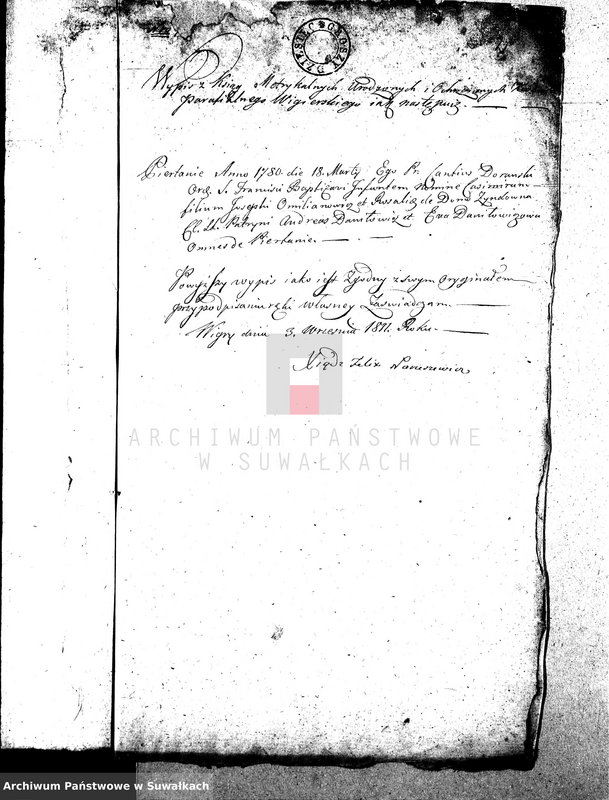 Wypis z Ksiąg Metrykalnych Urodzonych i Ochrzczonych
Parafialnego Wigierskiego iak następuie.
Piertanie Anno 1780. die 18. Martÿ Ego Pr. Cantius Doranski
Ord. S. Francisci Baptizavi Infantem Nomine Casimirum
filium Josephi Omilianowicz et Rosaliae de Domo Zyndowna
Patryni Andreas Daniłowicz et Eva Daniłowiczowa
Omnes de Piertanie.
Powyższy wypis iako iest Zgodny z swym Oryginałem
przy podpisaniu ręki własney Zaświadczam.
Wigry dnia 3. Września 1811. Roku.
Xiądz Felix Naruszewicz
ARCHIWUM PAŃSTWOWE
W SUWAŁKACH
Archiwum Państwowe w Suwałkach